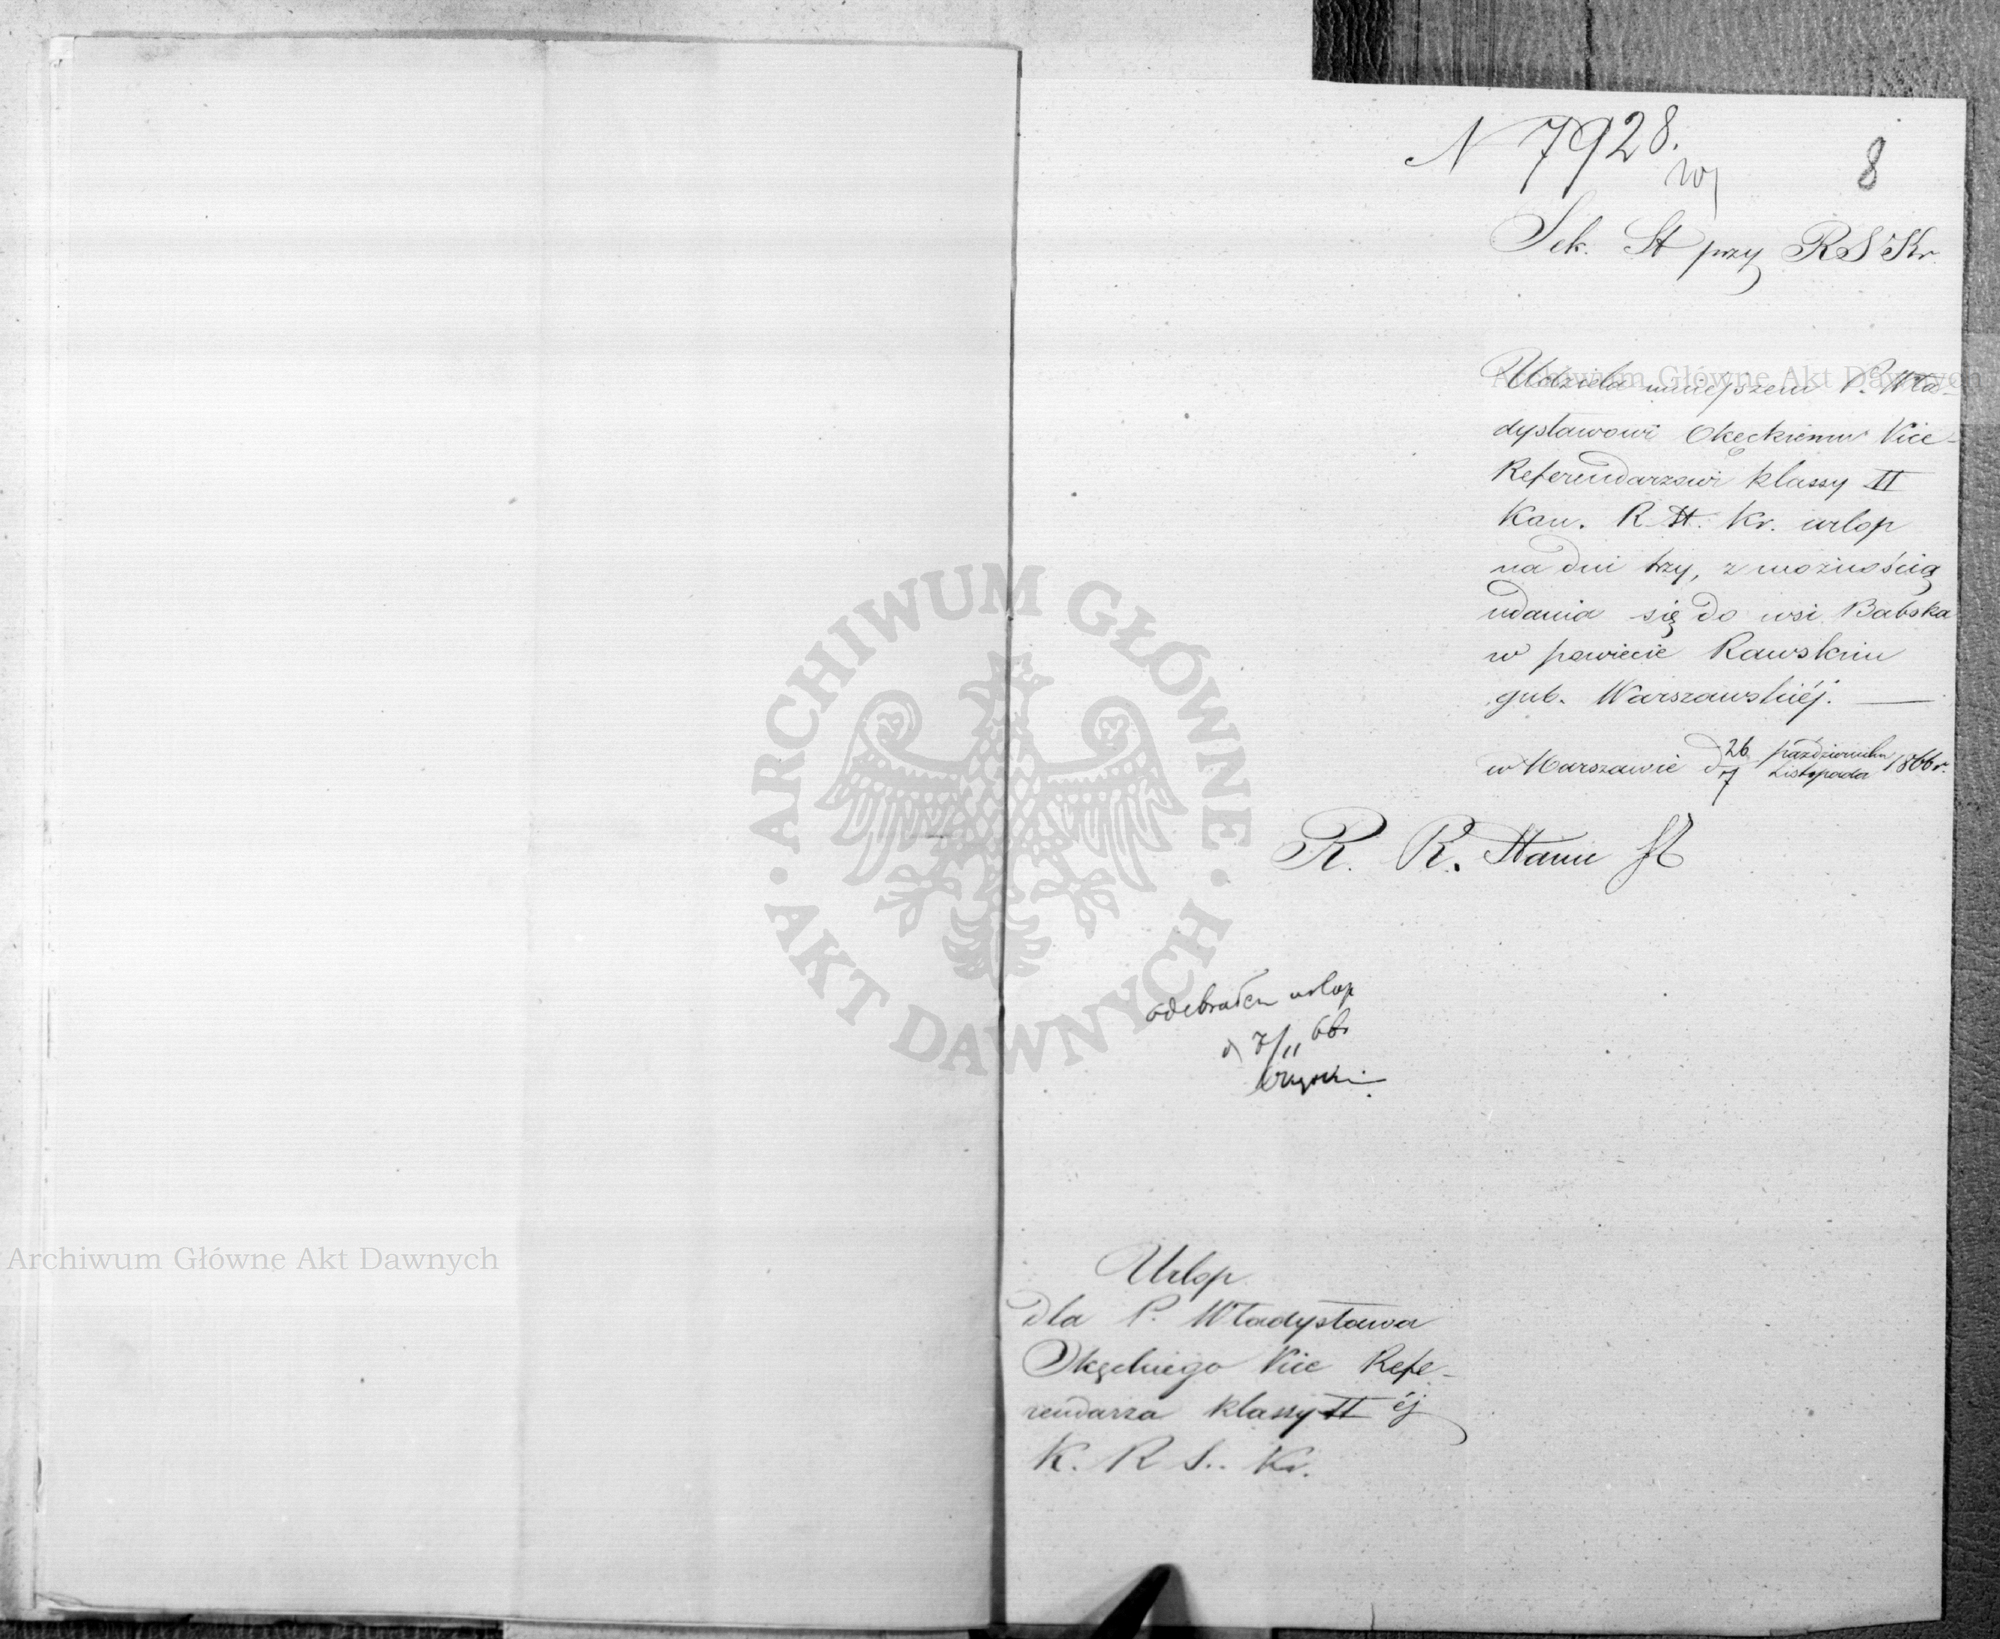 N 7928.
8
Sek. St przy RS Kr
Udziela niniejszem P. Wła-
dysławowi Okęckiemu Vice-
Referendarzowi klassy II
Kan. R. St. Kr. urlop
na dni trzy, z możnością
udania się do wsi Babska
w powiecie Rawskim
gub. Warszawskiéj.
w Warszawie d 26 października
7 Listopada 1866 r.
R. R. Stanu
odebrałem urlop
d 7/11 66r
Urlop
dla P. Władysława
Okęckiego Vice Refe-
rendarza klassy II éj
K. R S. Kr.
ARCHIWUM GŁÓWNE
AKT DAWNYCH
Archiwum Główne Akt Dawnych
Archiwum Główne Akt Dawnych